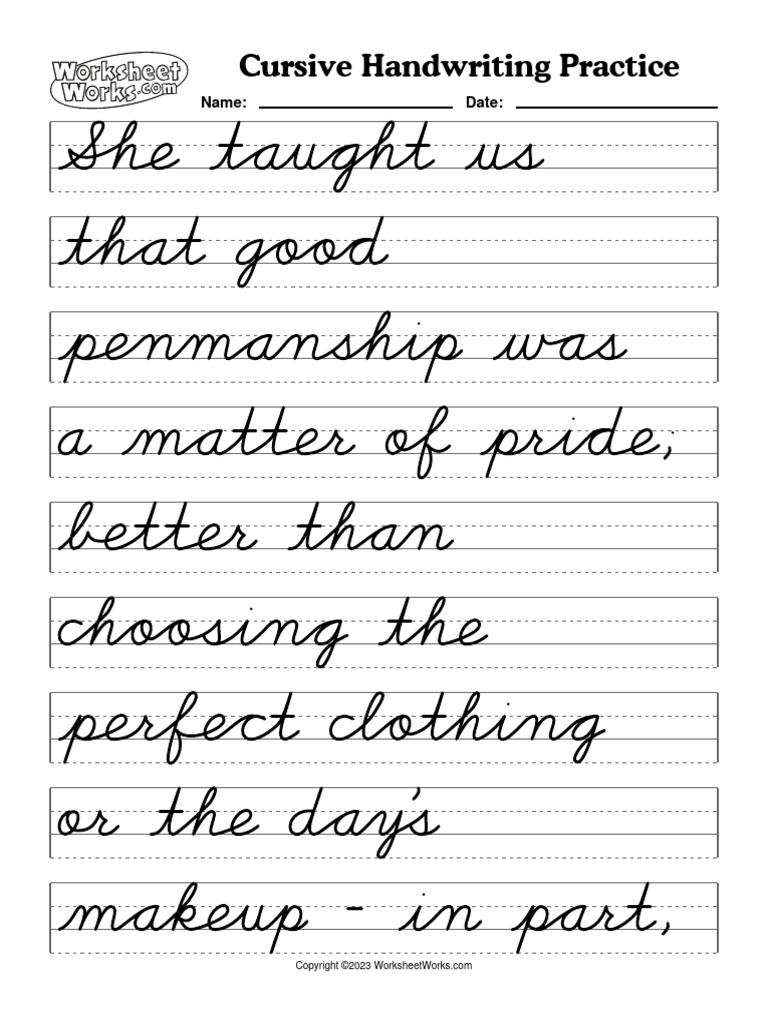 Worksheet Works.com
Cursive Handwriting Practice
Name: Date:
She taught us
that good
penmanship was
a matter of pride;
better than
choosing the
perfect clothing
or the day's
makeup - in part,
Copyright ©2023 WorksheetWorks.com